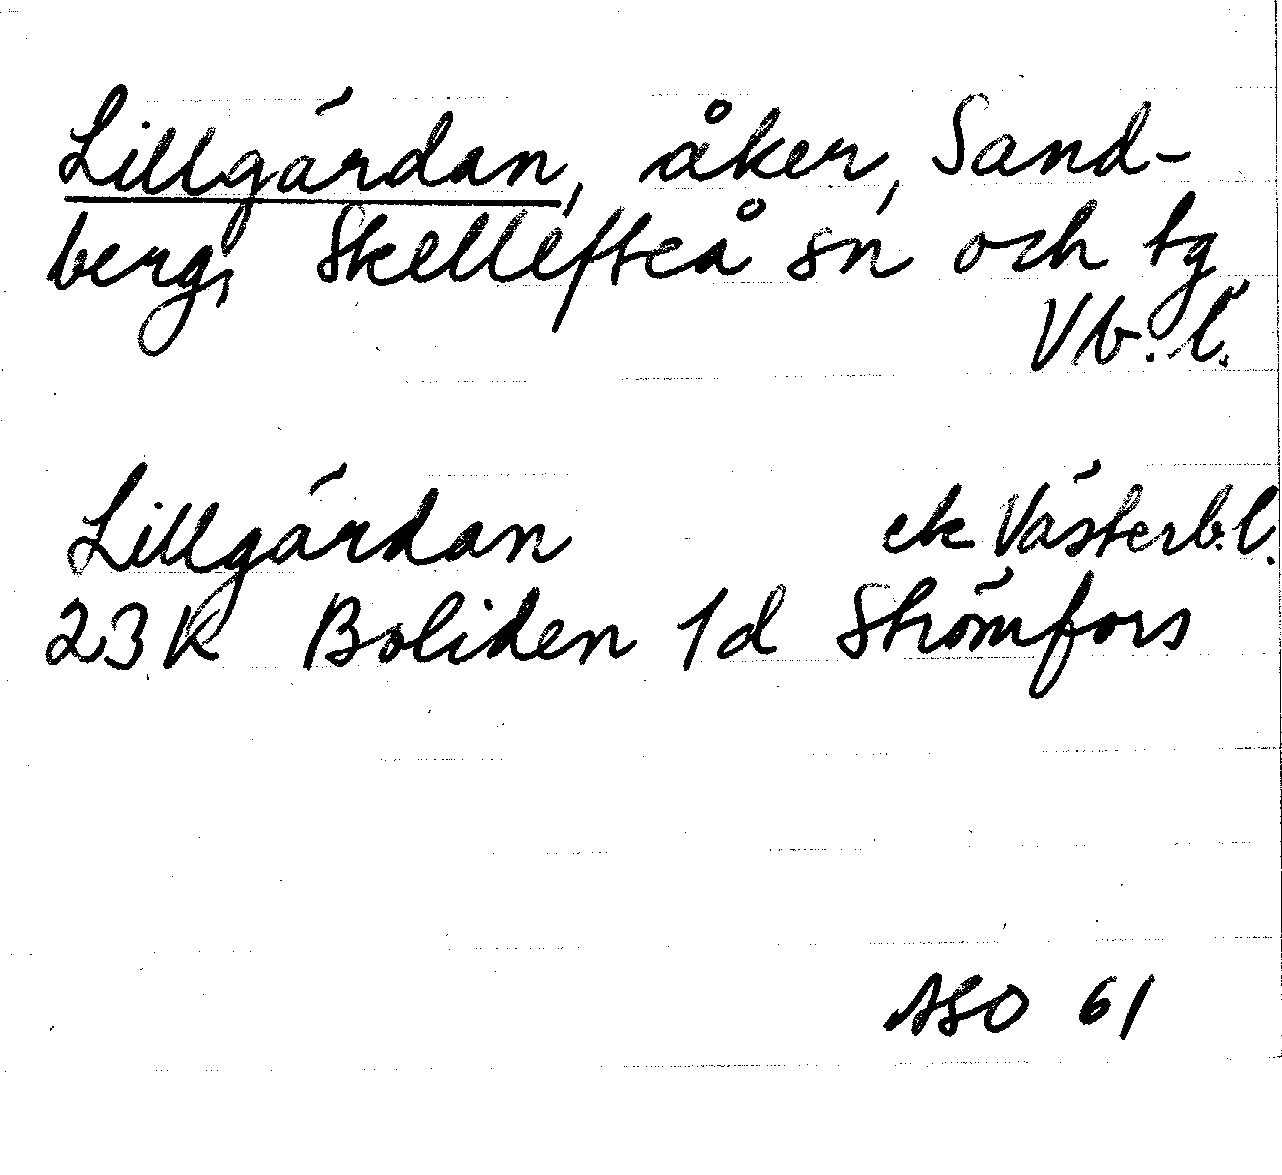 Lillgärdan, åker, Sand-
berg, Skellefteå sn och tg
Vb. l.
Lillgärdan ek Västerb. l.
23K Boliden 1d Strömfors
ASO 61